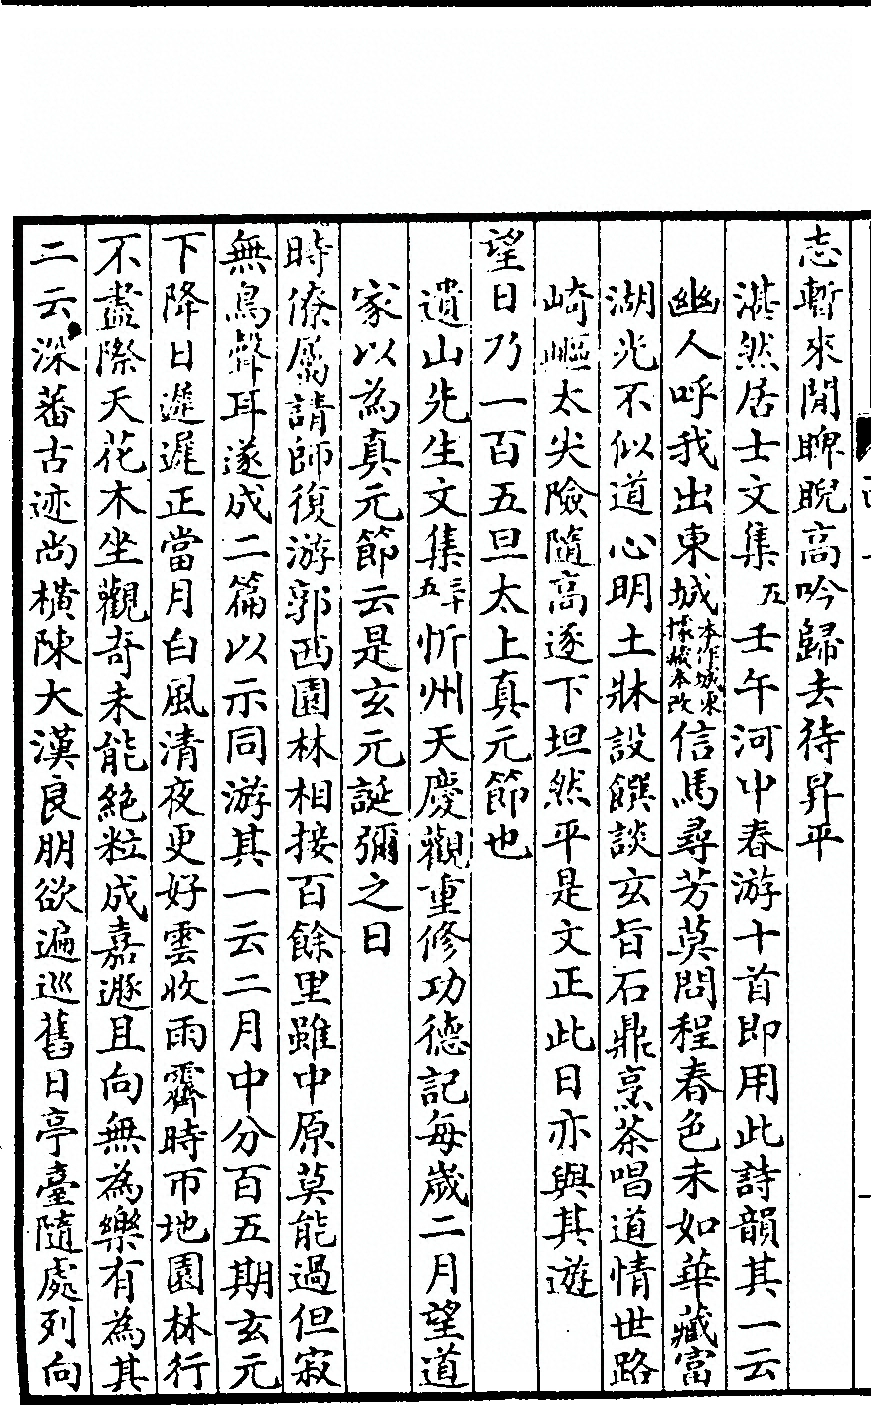 志暫來閒睥睨高吟歸去待昇平
湛然居士文集五壬午河中春游十首即用此詩韻其一云
幽人呼我出東城本作城東據藏本改信馬尋芳莫問程春色未如華藏富
湖光不似道心明土牀設饌談玄旨石鼎烹茶唱道情世路
崎嶇太尖險隨高逐下坦然平是文正此日亦與其遊
望日乃一百五旦太上真元節也
遺山先生文集三十五忻州天慶觀重修功德記每歲二月望道
家以為真元節云是玄元誕彌之日
時僚屬請師復游郭西園林相接百餘里雖中原莫能過但寂
無鳥聲耳遂成二篇以示同游其一云二月中分百五期玄元
下降日遲遲正當月白風清夜更好雲收雨霽時帀地園林行
不盡際天花木坐觀奇未能絕粒成嘉遯且向無為樂有為其
二云深蕃古迹尚橫陳大漢良朋欲遍巡舊日亭臺隨處列向